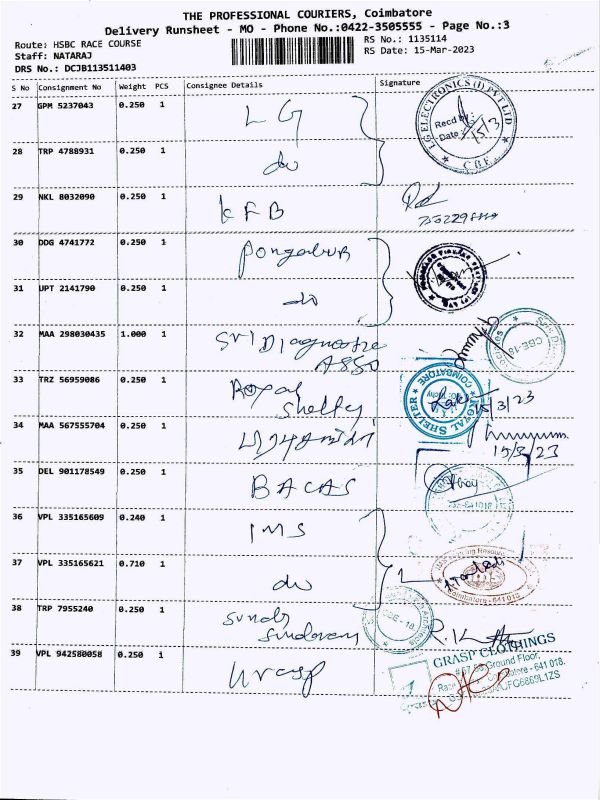 THE PROFESSIONAL COURIERS, Coimbatore
Delivery Runsheet - MO - Phone No.:0422-3505555 - Page No.:3
Route: HSBC RACE COURSE
RS No.: 1135114
Staff: NATARAJ
RS Date: 15-Mar-2023
DRS No.: DCJB113511403
S No Consignment No Weight PCS Consignee Details Signature
27 GPM 5237043 0.250 1 LG
LG ELECTRONICS (I) PVT LTD
Recd by
Date 15/3
C.B.E.
28 TRP 4788931 0.250 1 do
29 NKL 8032090 0.250 1 KFB
30 DDG 4741772 0.250 1
31 UPT 2141790 0.250 1 do
32 MAA 298030435 1.000 1 Sri Diagnostic
CBE-18
33 TRZ 56959086 0.250 1 Royal
ROYAL SHELTER
COIMBATORE
15/3/23
34 MAA 567555704 0.250 1
15/3/23
35 DEL 901178549 0.250 1 BACAS
36 VPL 335165609 0.240 1 IMS
37 VPL 335165621 0.710 1 do
Coimbatore - 641 018
38 TRP 7955240 0.250 1 Sundar
39 VPL 942580058 0.250 1 Grasp
GRASP CLOTHINGS
Ground Floor,
Coimbatore - 641 018.